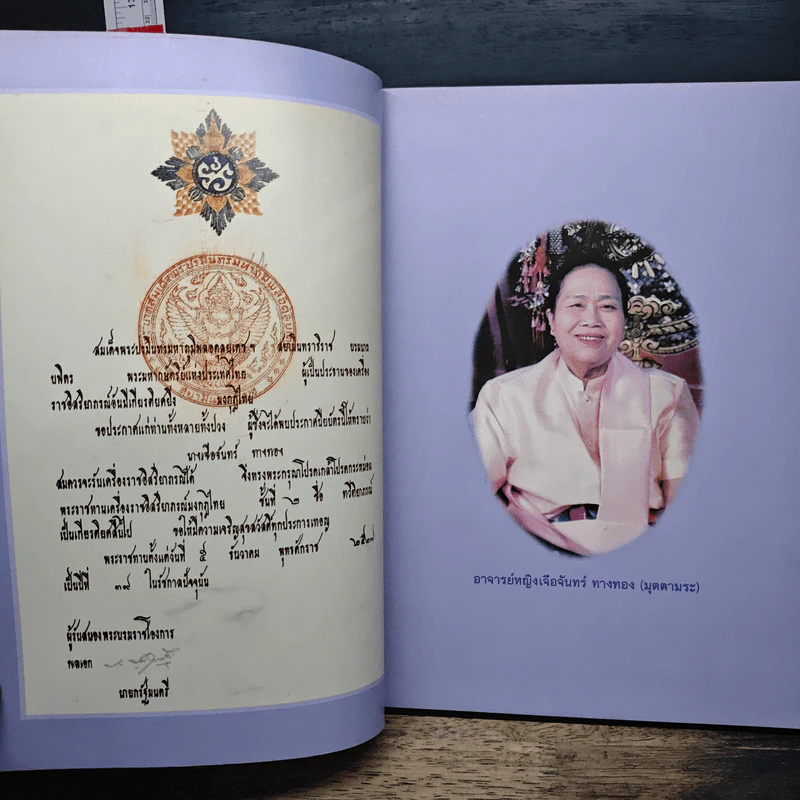 สมเด็จพระปรมินทรมหาภูมิพลอดุลยเดช ฯ สยามินทราธิราช บรมนาถ
บพิตร พระมหากษัตริย์แห่งประเทศไทย ผู้เป็นประธานของเครื่อง
ราชอิสริยาภรณ์อันมีเกียรติยศยิ่ง มงกุฎไทย
ขอประกาศแก่ท่านทั้งหลายทั้งปวง ผู้ซึ่งจะได้พบประกาศนียบัตรนี้ให้ทราบว่า
นางเจือจันทร์ ทางทอง
สมควรจะรับเครื่องราชอิสริยาภรณ์ได้ จึ่งทรงพระกรุณาโปรดเกล้าโปรดกระหม่อม
พระราชทานเครื่องราชอิสริยาภรณ์มงกุฎไทย ชั้นที่ ๒ ชื่อ ทวีติยาภรณ์
เป็นเกียรติยศสืบไป ขอให้มีความเจริญสุขสวัสดิ์ทุกประการเทอญ
พระราชทานตั้งแต่วันที่ ๕ ธันวาคม พุทธศักราช ๒๕๒๗
เป็นปีที่ ๓๙ ในรัชกาลปัจจุบัน
ผู้รับสนองพระบรมราชโองการ
พลเอก
นายกรัฐมนตรี
อาจารย์หญิงเจือจันทร์ ทางทอง (มุตตามระ)